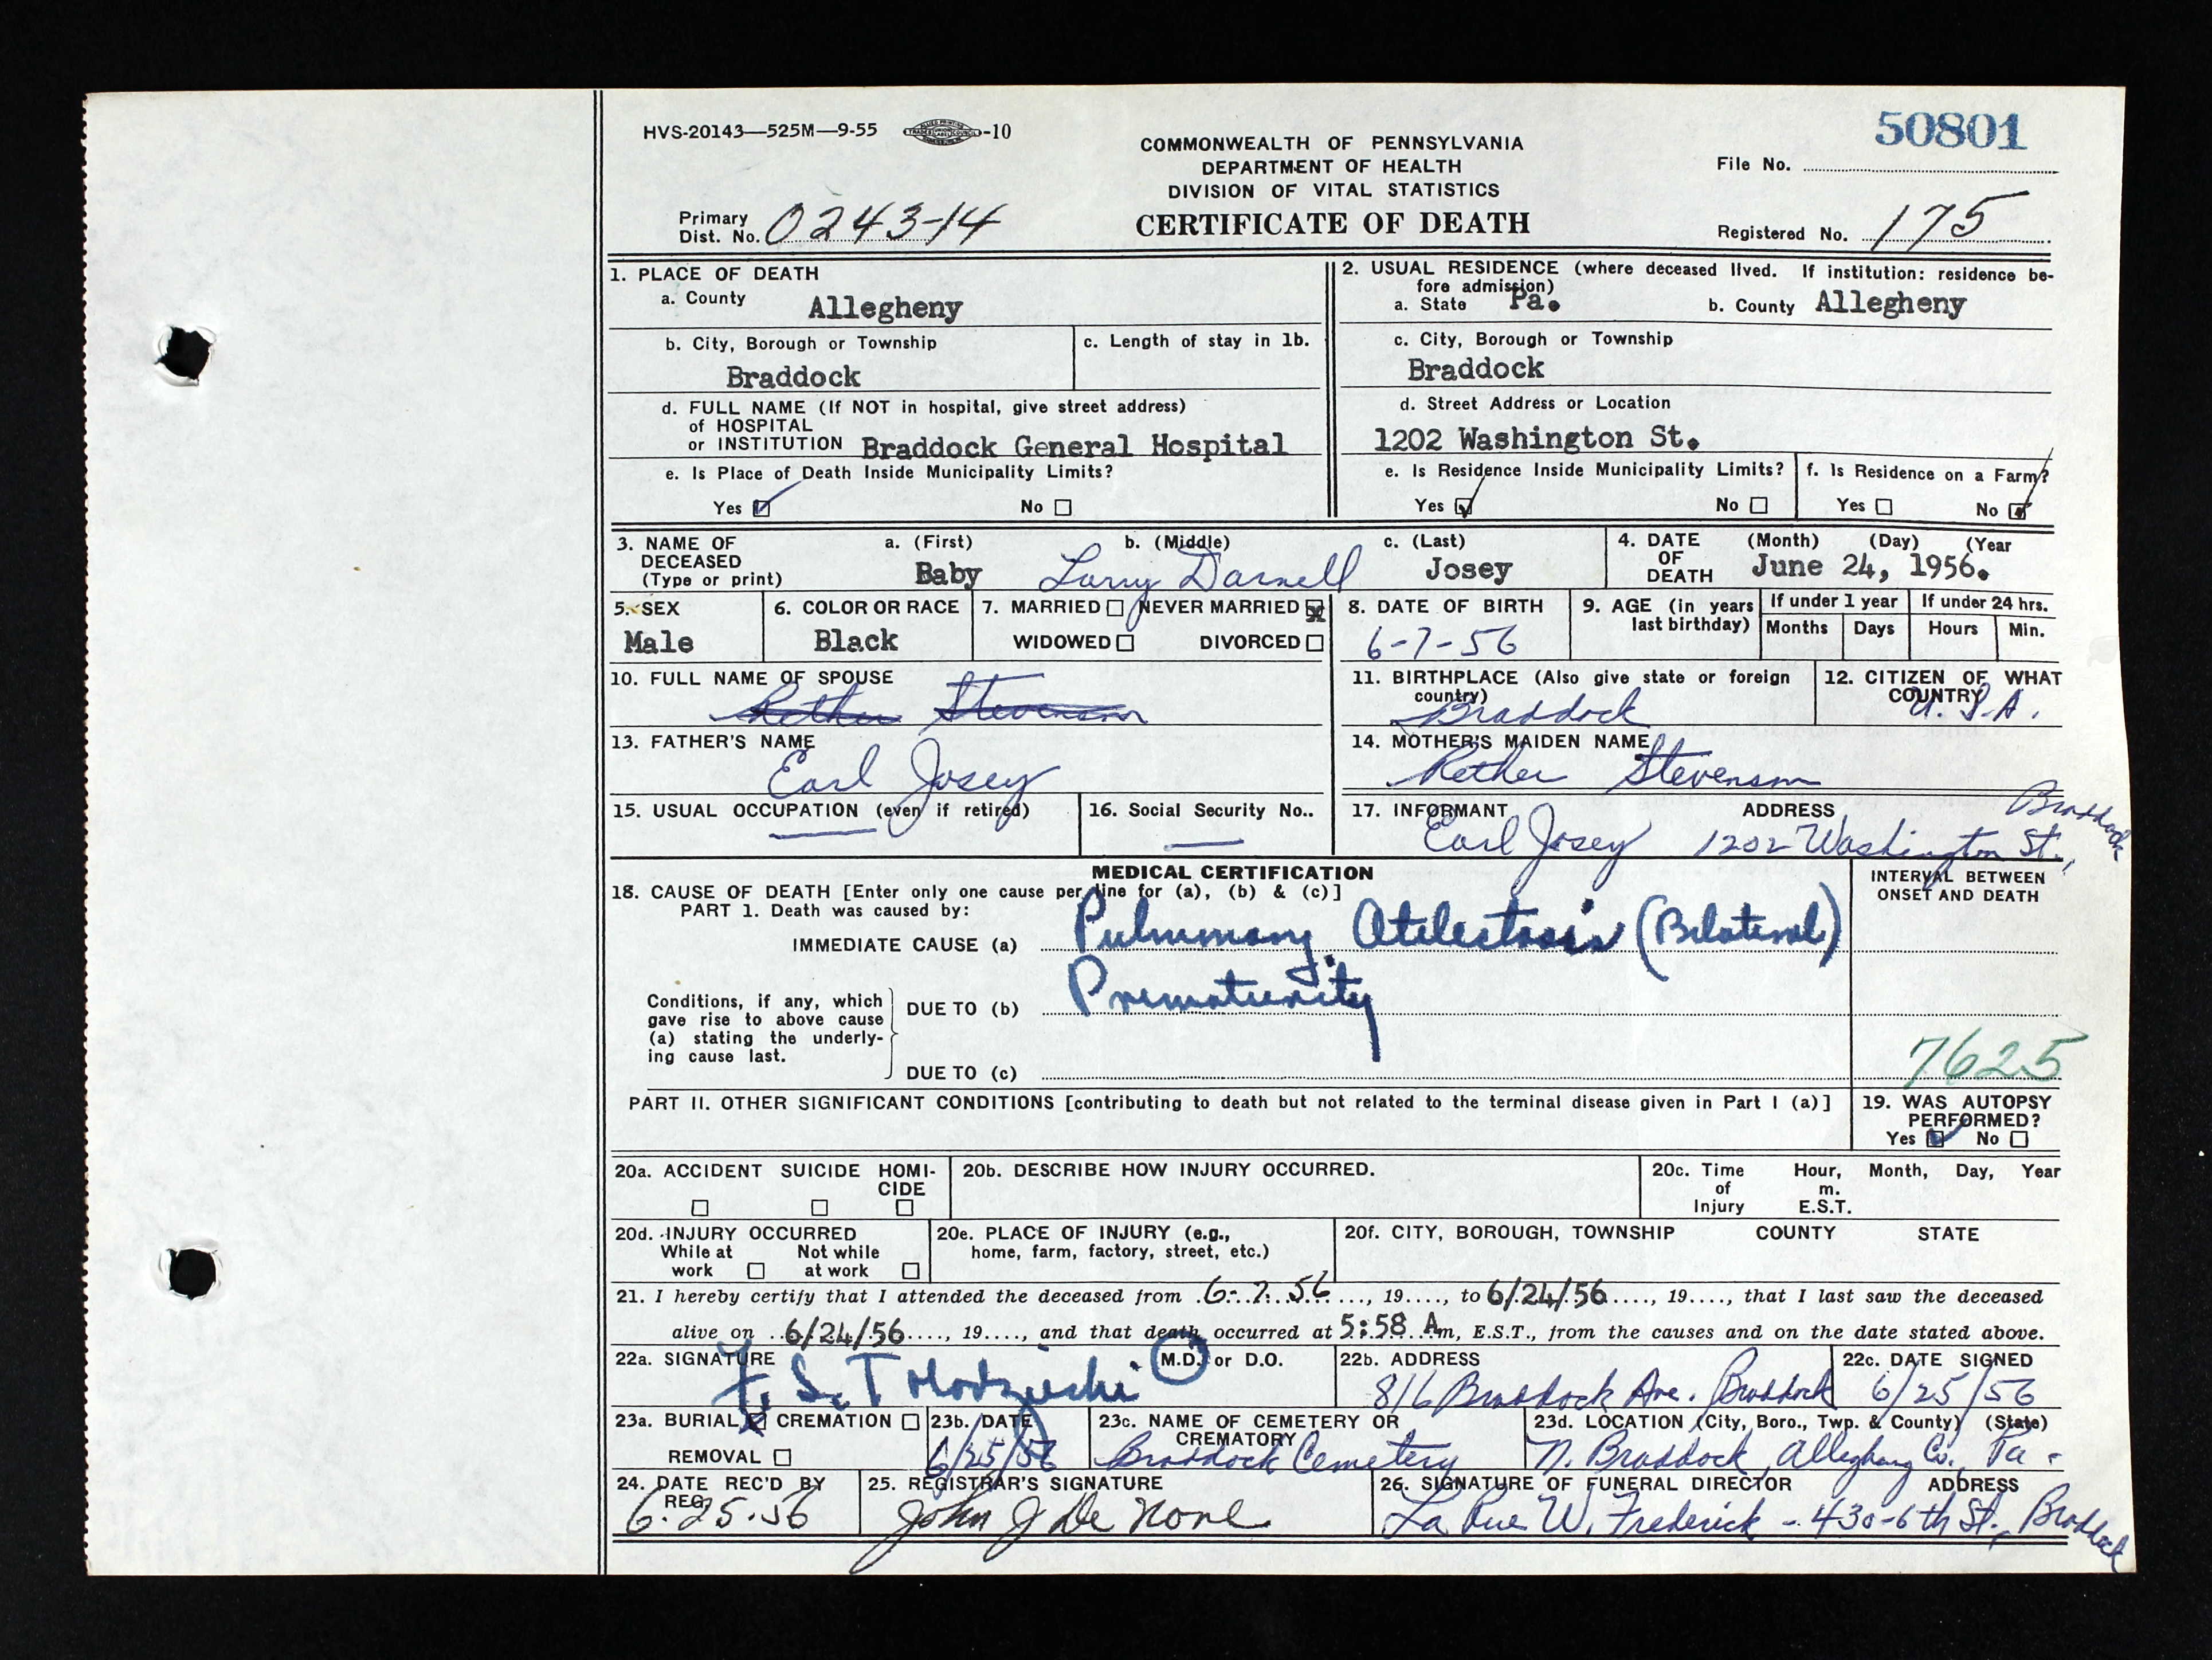 HVS-20143—525M—9-55 -10
50801
COMMONWEALTH OF PENNSYLVANIA
DEPARTMENT OF HEALTH
DIVISION OF VITAL STATISTICS
CERTIFICATE OF DEATH
File No.
Primary
Dist. No. 0243-14
Registered No. 175
1. PLACE OF DEATH
a. County Allegheny
b. City, Borough or Township
Braddock
c. Length of stay in 1b.
d. FULL NAME (If NOT in hospital, give street address)
of HOSPITAL
or INSTITUTION Braddock General Hospital
e. Is Place of Death Inside Municipality Limits?
Yes No
2. USUAL RESIDENCE (where deceased lived. If institution: residence be-
fore admission)
a. State Pa. b. County Allegheny
c. City, Borough or Township
Braddock
d. Street Address or Location
1202 Washington St.
e. Is Residence Inside Municipality Limits?
Yes No
f. Is Residence on a Farm?
Yes No
3. NAME OF
DECEASED
(Type or print)
a. (First) b. (Middle) c. (Last)
Baby Larry Darnell Josey
4. DATE
OF
DEATH
(Month) (Day) (Year
June 24, 1956.
5. SEX
Male
6. COLOR OR RACE
Black
7. MARRIED NEVER MARRIED
WIDOWED DIVORCED
8. DATE OF BIRTH
6-7-56
9. AGE (in years
last birthday)
If under 1 year
Months Days
If under 24 hrs.
Hours Min.
10. FULL NAME OF SPOUSE
Rether Stevenson
11. BIRTHPLACE (Also give state or foreign
country)
Braddock
12. CITIZEN OF WHAT
COUNTRY
U.S.A.
13. FATHER'S NAME
Earl Josey
14. MOTHER'S MAIDEN NAME
Rether Stevenson
15. USUAL OCCUPATION (even if retired)
16. Social Security No..
17. INFORMANT ADDRESS
Earl Josey 1202 Washington St., Braddock
MEDICAL CERTIFICATION
18. CAUSE OF DEATH [Enter only one cause per line for (a), (b) & (c)]
PART 1. Death was caused by:
IMMEDIATE CAUSE (a) Pulmonary Atelectasis (Bilateral)
Conditions, if any, which
gave rise to above cause
(a) stating the underly-
ing cause last.
DUE TO (b) Prematurity
DUE TO (c)
INTERVAL BETWEEN
ONSET AND DEATH
7625
PART II. OTHER SIGNIFICANT CONDITIONS [contributing to death but not related to the terminal disease given in Part I (a)]
19. WAS AUTOPSY
PERFORMED?
Yes No
20a. ACCIDENT SUICIDE HOMI-
CIDE
20b. DESCRIBE HOW INJURY OCCURRED.
20c. Time
of
Injury
Hour, Month, Day, Year
m.
E.S.T.
20d. INJURY OCCURRED
While at
work
Not while
at work
20e. PLACE OF INJURY (e.g.,
home, farm, factory, street, etc.)
20f. CITY, BOROUGH, TOWNSHIP COUNTY STATE
21. I hereby certify that I attended the deceased from 6-7-56, 19...., to 6/24/56...., 19...., that I last saw the deceased
alive on 6/24/56...., 19...., and that death occurred at 5:58 A.m, E.S.T., from the causes and on the date stated above.
22a. SIGNATURE M.D. or D.O.
22b. ADDRESS
816 Braddock Ave. Braddock
22c. DATE SIGNED
6/25/56
23a. BURIAL CREMATION
REMOVAL
23b. DATE
6/25/56
23c. NAME OF CEMETERY OR
CREMATORY
Braddock Cemetery
23d. LOCATION (City, Boro., Twp. & County) (State)
N. Braddock, Allegheny Co., Pa.
24. DATE REC'D BY
REG.
6.25.56
25. REGISTRAR'S SIGNATURE
John J De None
26. SIGNATURE OF FUNERAL DIRECTOR ADDRESS
La Rue W. Frederick - 430-6th St., Braddock